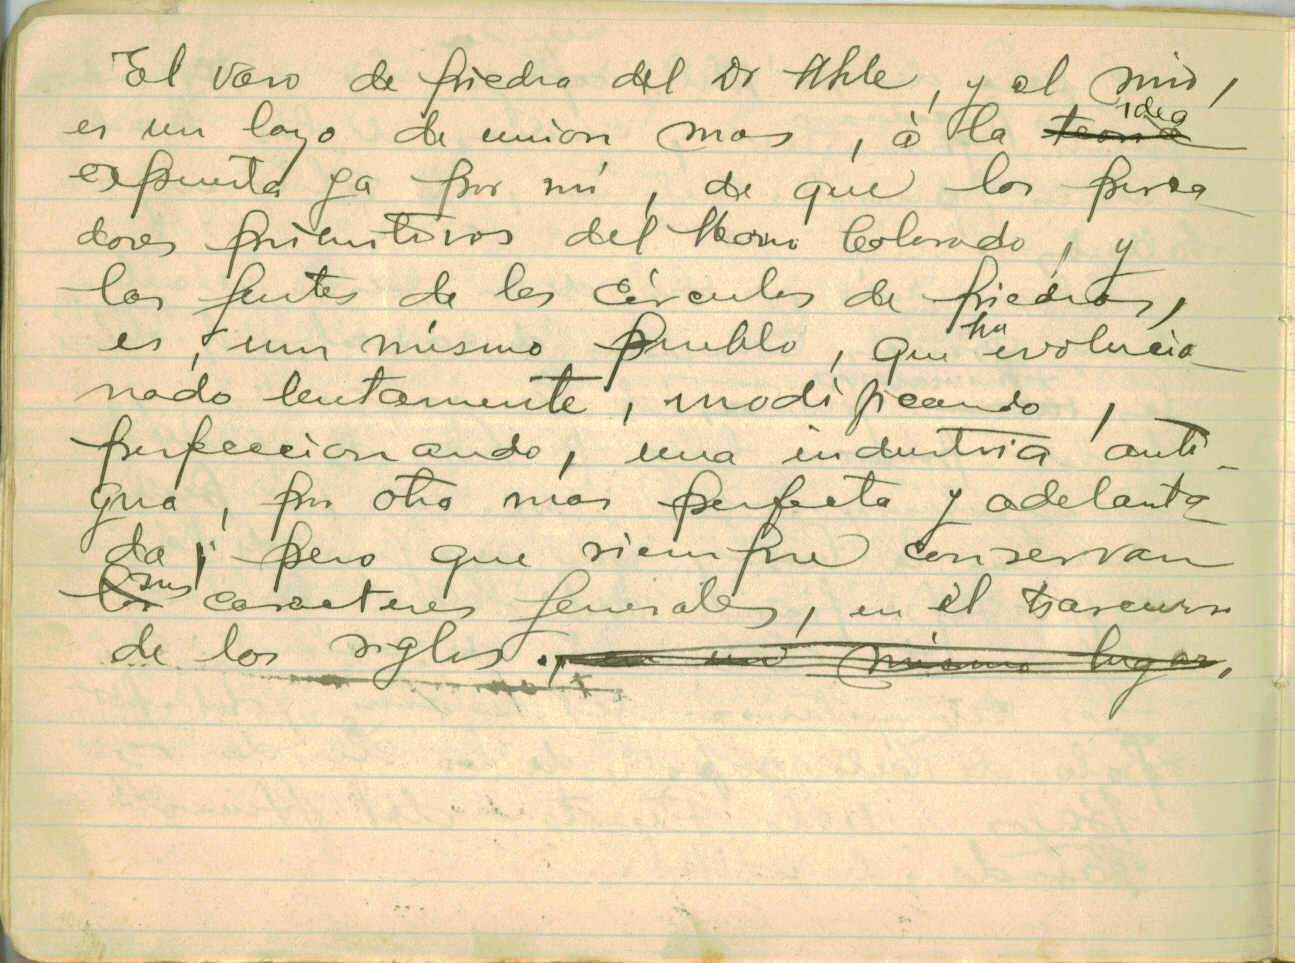 El vaso de piedra del Dr Uhle, y el mio,
es un lazo de union mas, á la idea
expuesta ya por mi, de que los pesca
dores primitivos del Morro Colorado, y
las gentes de los circulos de piedras,
es, un mismo pueblo, que ha evolucio
nado lentamente, modificando,
perfeccionando, una industria anti-
gua, por otra mas perfecta y adelanta
da, pero que siempre conservan
sus caracteres generales, en el trascurso
de los siglos. en un mismo lugar,